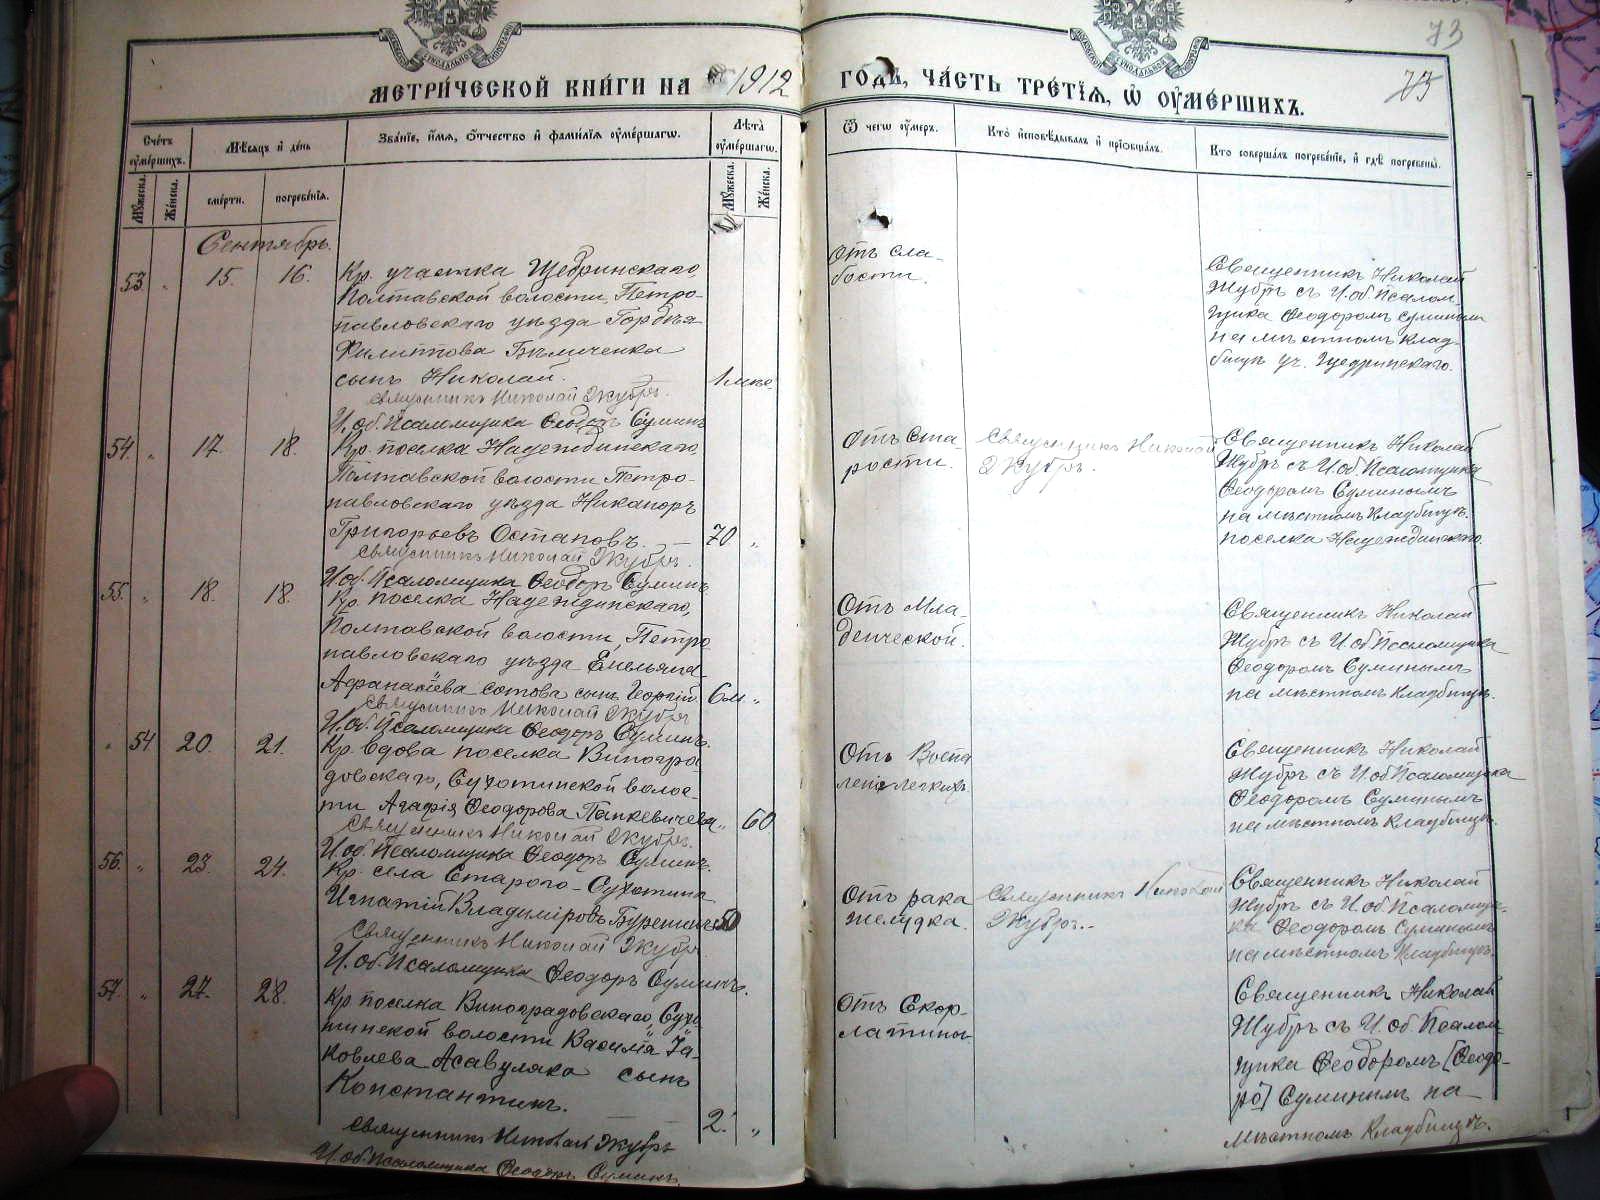 73
73
МЕТРИ́ЧЕСКОЙ КНИ́ГИ НА 1912 ГОДЪ, ЧА́СТЬ ТРЕ́ТІѦ, Ѡ ОУМЕ́РШИХЪ.
Сче́тъ оуме́ршихъ.
Мѣ́сяцъ и де́нь
Зва́ніе, и́мя, о́тчество и фами́лія оуме́ршагѡ.
Лѣта̀ оуме́ршагѡ.
Ѿ чегѡ оу́меръ.
Кто̀ исповѣ́дывалъ и пріобща́лъ.
Кто соверша́лъ погребе́ніе, и гдѣ̀ погребены̀.
Му́жеска.
Же́нска.
сме́рти.
погребе́нія.
Му́жеска.
Же́нска.
Сентябрь.
53. „ 15. 16.
Кр. участка Щедринскаго,
Полтавской волости, Петро-
павловскаго уѣзда Гордѣя
Филиппова Бѣличенка
сынъ Николай. 1 мѣс.
Священникъ Николай Жубръ.
И. об. Псаломщика Ѳеодоръ Суминъ
Отъ сла-
бости.
Священникъ Николай
Жубръ съ И. об. Псалом-
щика Ѳеодоромъ Суминым
на мѣстномъ клад-
бищѣ уч. Щедринскаго.
54. „ 17. 18.
Кр. поселка Надеждинскаго,
Полтавской волости Петро-
павловскаго уѣзда Никаноръ
Григорьевъ Остаповъ. 70 „
Священникъ Николай Жубръ.
И. об. Псаломщика Ѳеодоръ Суминъ.
Отъ ста-
рости.
Священникъ Николай
Жубръ.
Священникъ Николай
Жубръ съ И. об. Псаломщика
Ѳеодоромъ Суминымъ
на мѣстномъ кладбищѣ.
поселка Надеждинскаго.
55. „ 18. 18.
Кр. поселка Надеждинскаго,
Полтавской волости, Петро
павловскаго уѣзда Емельяна
Афанасіева Сотова сынъ Георгій. 6 м. „
Священникъ Николай Жубръ
И. об. Псаломщика Ѳеодоръ Суминъ.
Отъ Мла-
денческой.
Священникъ Николай
Жубръ съ И. об Псаломщика
Ѳеодоромъ Суминымъ
на мѣстномъ кладбищѣ.
„ 54 20. 21.
Кр. вдова поселка Виногра
довскаго, Сухотинской волос-
ти Агафія Ѳеодорова Панкевичева „ 60
Священникъ Николай Жубръ.
И. об. Псаломщика Ѳеодоръ Суминъ.
Отъ Воспа
ленія легкихъ.
Священникъ Николай
Жубръ съ И об Псаломщика
Ѳеодоромъ Суминымъ
на мѣстномъ кладбищѣ.
56. „ 23. 24.
Кр. села Старого-Сухотина
Игнатій Владиміровъ 50
Священникъ Николай Жубръ
И. об. Псаломщика Ѳеодоръ Суминъ.
Отъ рака
желудка.
Священникъ Николай
Жубръ.
Священникъ Николай
Жубръ съ И. об. Псаломщи-
ка Ѳеодоромъ Суминымъ
на мѣстномъ Кладбищѣ.
57. „ 27. 28.
Кр поселка Виноградовскаго, Сухо-
тинской волости Василія Іа-
ковлева Асавуляка сынъ
Константинъ. 2. „
Священникъ Николай Жубръ
И. об. Псаломщика Ѳеодоръ Суминъ.
Отъ Скар-
латины
Священникъ Николай
Жубръ съ И. об Псалом-
щика Ѳеодоромъ [Ѳеодо-
ро] Суминым на
мѣстномъ Кладбищѣ.